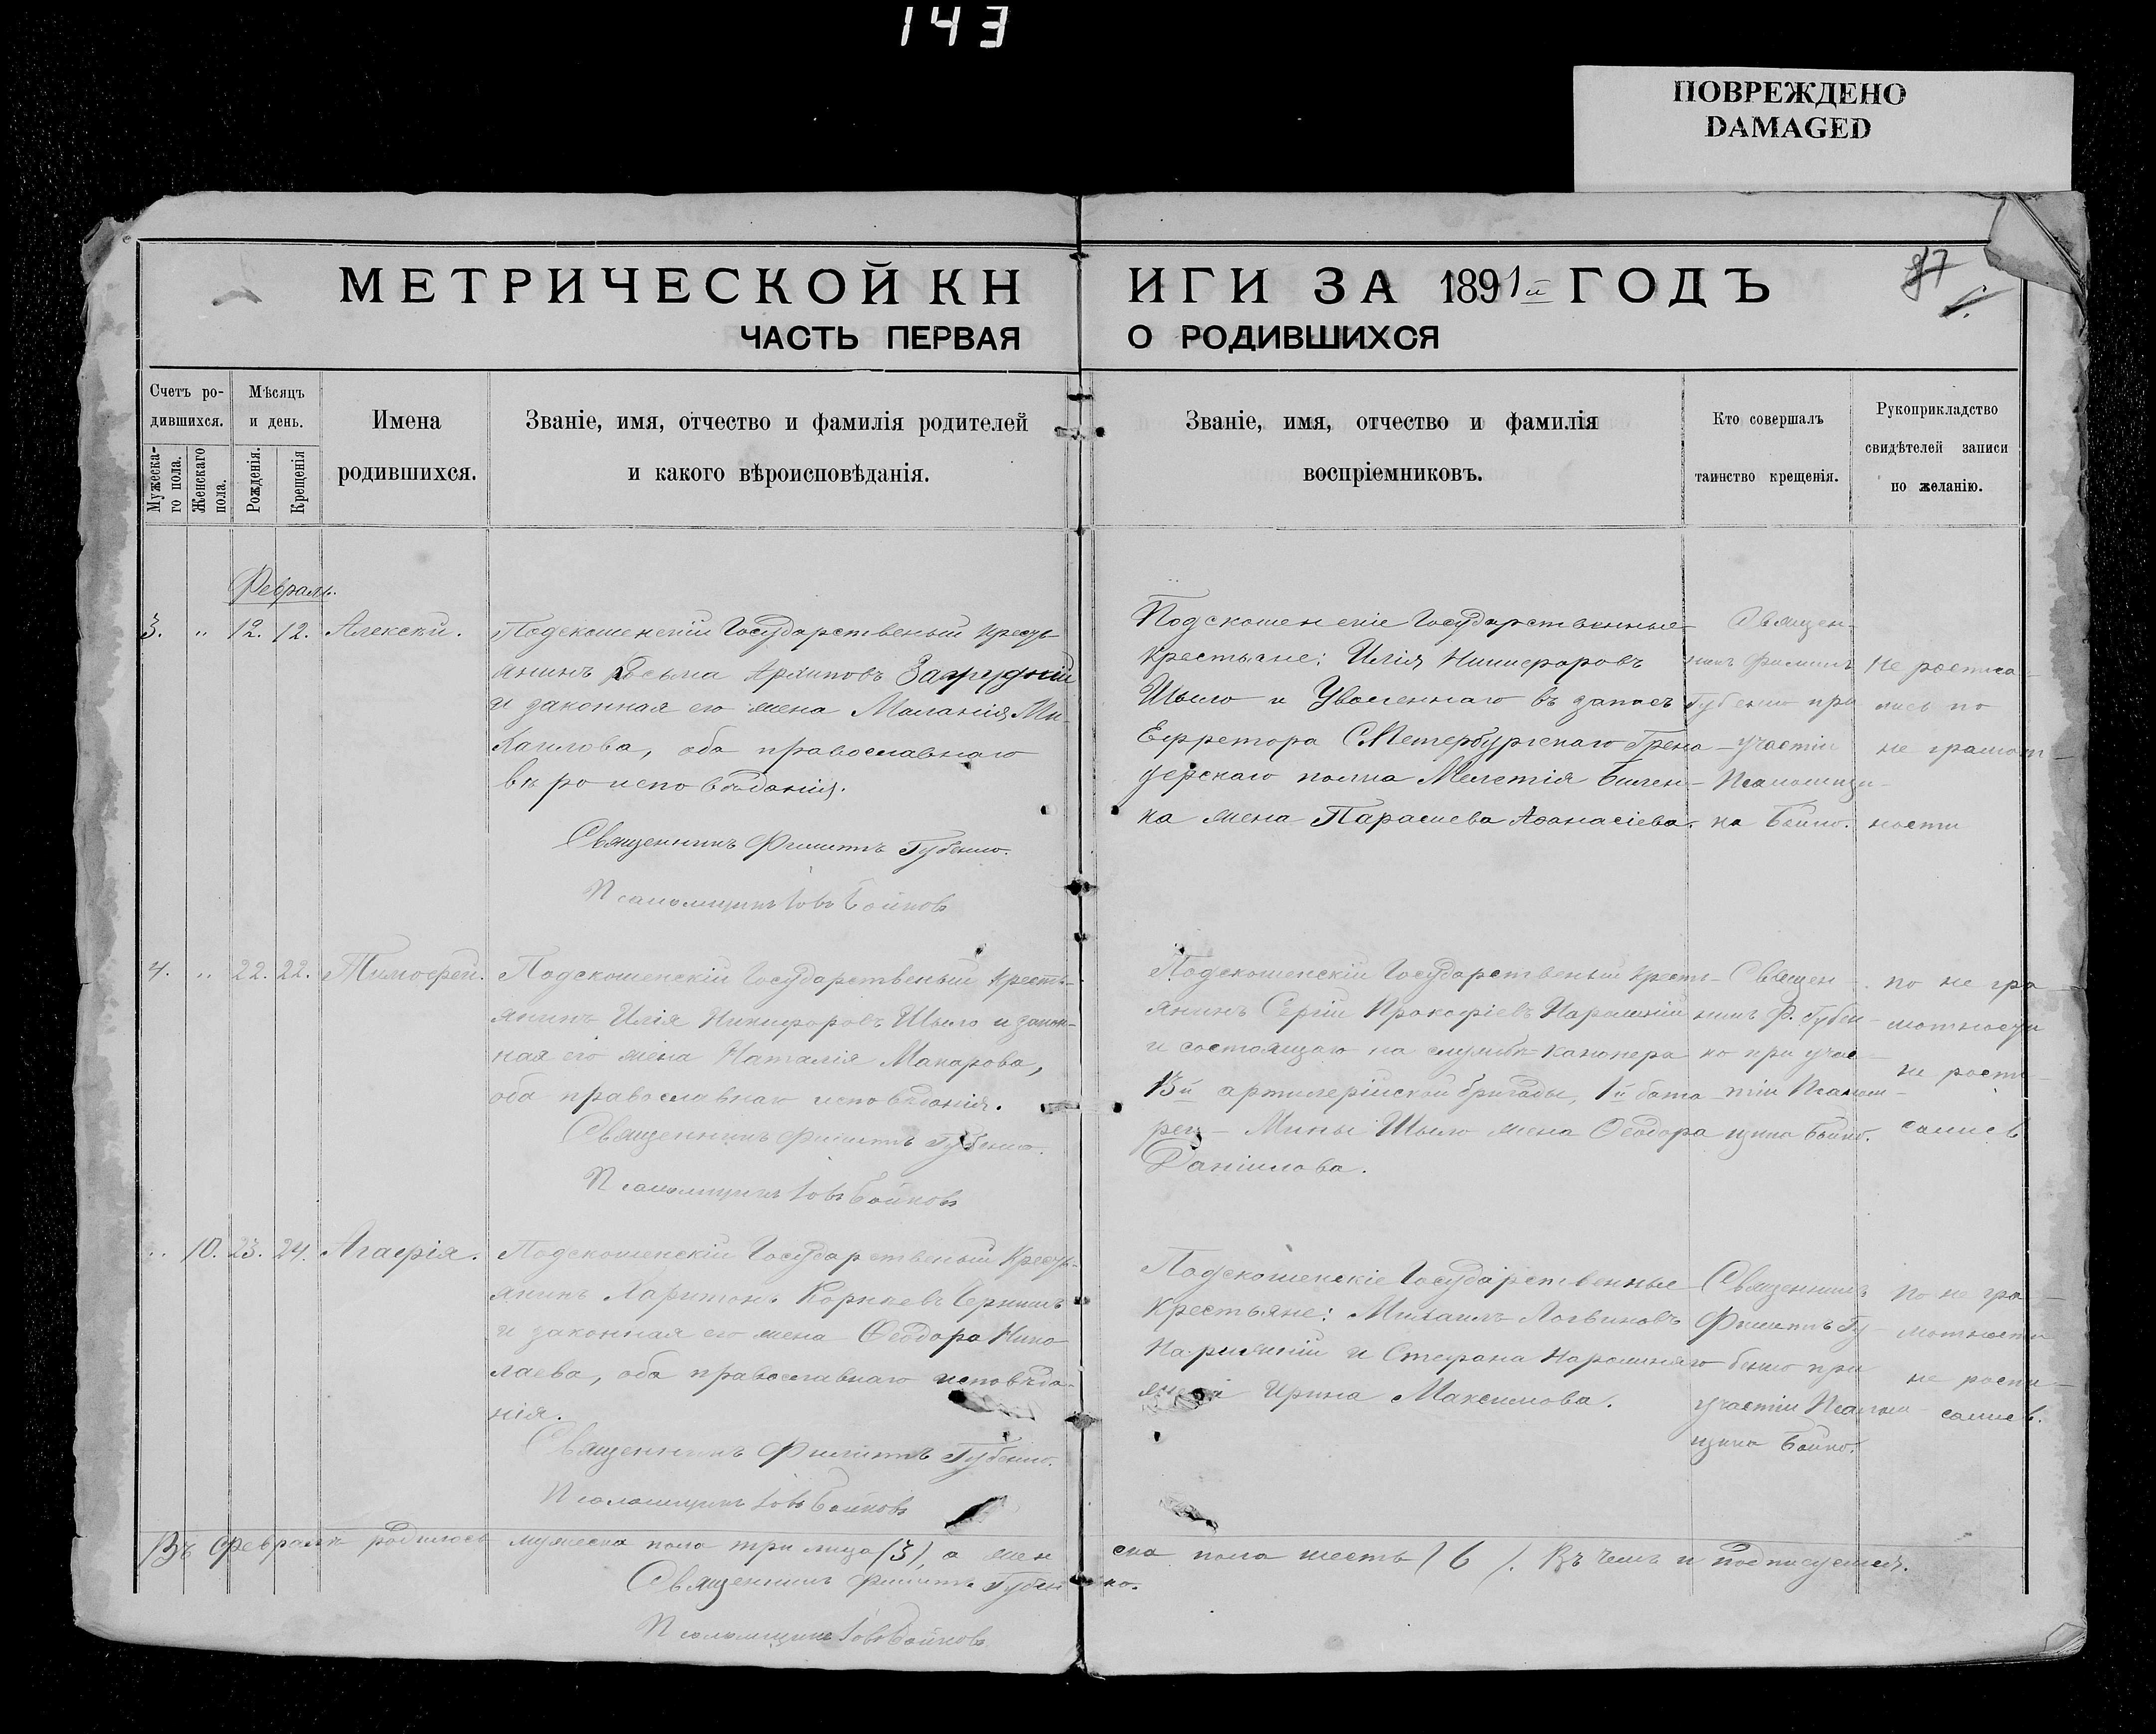 143
ПОВРЕЖДЕНО
DAMAGED
МЕТРИЧЕСКОЙ КНИГИ ЗА 1891й ГОДЪ
87
ЧАСТЬ ПЕРВАЯ О РОДИВШИХСЯ
Счетъ ро-
дившихся.
Мужеска-
го пола.
Женскаго
пола.
Мѣсяцъ
и день.
Рожденія.
Крещенія
Имена
родившихся.
Званіе, имя, отчество и фамилія родителей
и какого вѣроисповѣданія.
Званіе, имя, отчество и фамилія
воспріемниковъ.
Кто совершалъ
таинство крещенія.
Рукоприкладство
свидѣтелей записи
по желанію.
Февраль.
3. " 12. 12. Алексѣй.
Государственый кресть-
янинъ Архиповъ
и законная его жена Маланія Ми-
хаилова, оба православнаго
вѣроисповѣданія.
Священникъ Филиппъ Губенко.
Псаломщикъ Іовъ Бойковъ
Государственные
крестьяне: Илія Никифоровъ
Шыло и Уволеннаго въ запасъ
Ефрейтора СПетербургскаго Грена-
дерскаго полка Мелетія Билен-
ка жена Параскева Аѳанасіева.
Священ-
никъ Филиппъ
Губенко при
участіи
Псаломщи-
ка Бойко.
Не росписа-
лись по
не грамот-
ности
4. " 22. 22. Тимофей.
Подскошенскій Государственый кресть-
янинъ Илія Никифоровъ Шыло и закон-
ная его жена Наталія Макарова,
оба православнаго исповѣданія.
Священникъ Филиппъ Губенко.
Псаломщикъ Іовъ Бойковъ
Подскошенскій Государственый кресть-
янинъ Сергій Прокофіевъ
и состоящаго на службѣ канонера
13й артилерійской бригады, 1й бата-
реи - Мины Шыло жена Ѳеодора
Даніилова.
Священ-
никъ Ф. Губен-
ко при учас-
тіи Псалом-
щика Бойко.
по не гра-
мотности
не роспи-
сались
" 10. 23. 24. Агафія.
Подскошенскій Государственый Кресть-
янинъ Харитонъ Корнѣевъ
и законная его жена Ѳеодора Нико-
лаева, оба православнаго исповѣда-
нія.
Священникъ Филиппъ Губенко.
Псаломщикъ Іовъ Бойковъ
Подскошенскіе Государственные
крестьяне: Михаилъ Логвиновъ
и Стефана
Ирина Максимова.
Священникъ
Филиппъ Гу-
бенко при
участіи Псалом-
щика Бойко.
по не гра-
мотности
не роспи-
сались.
Въ февралѣ родилось мужеска пола три лица (3), а жен
ска пола шесть (6). Въ чемъ и подписуемся.
Священникъ Филиппъ Губенко.
Псаломщикъ Іовъ Бойковъ